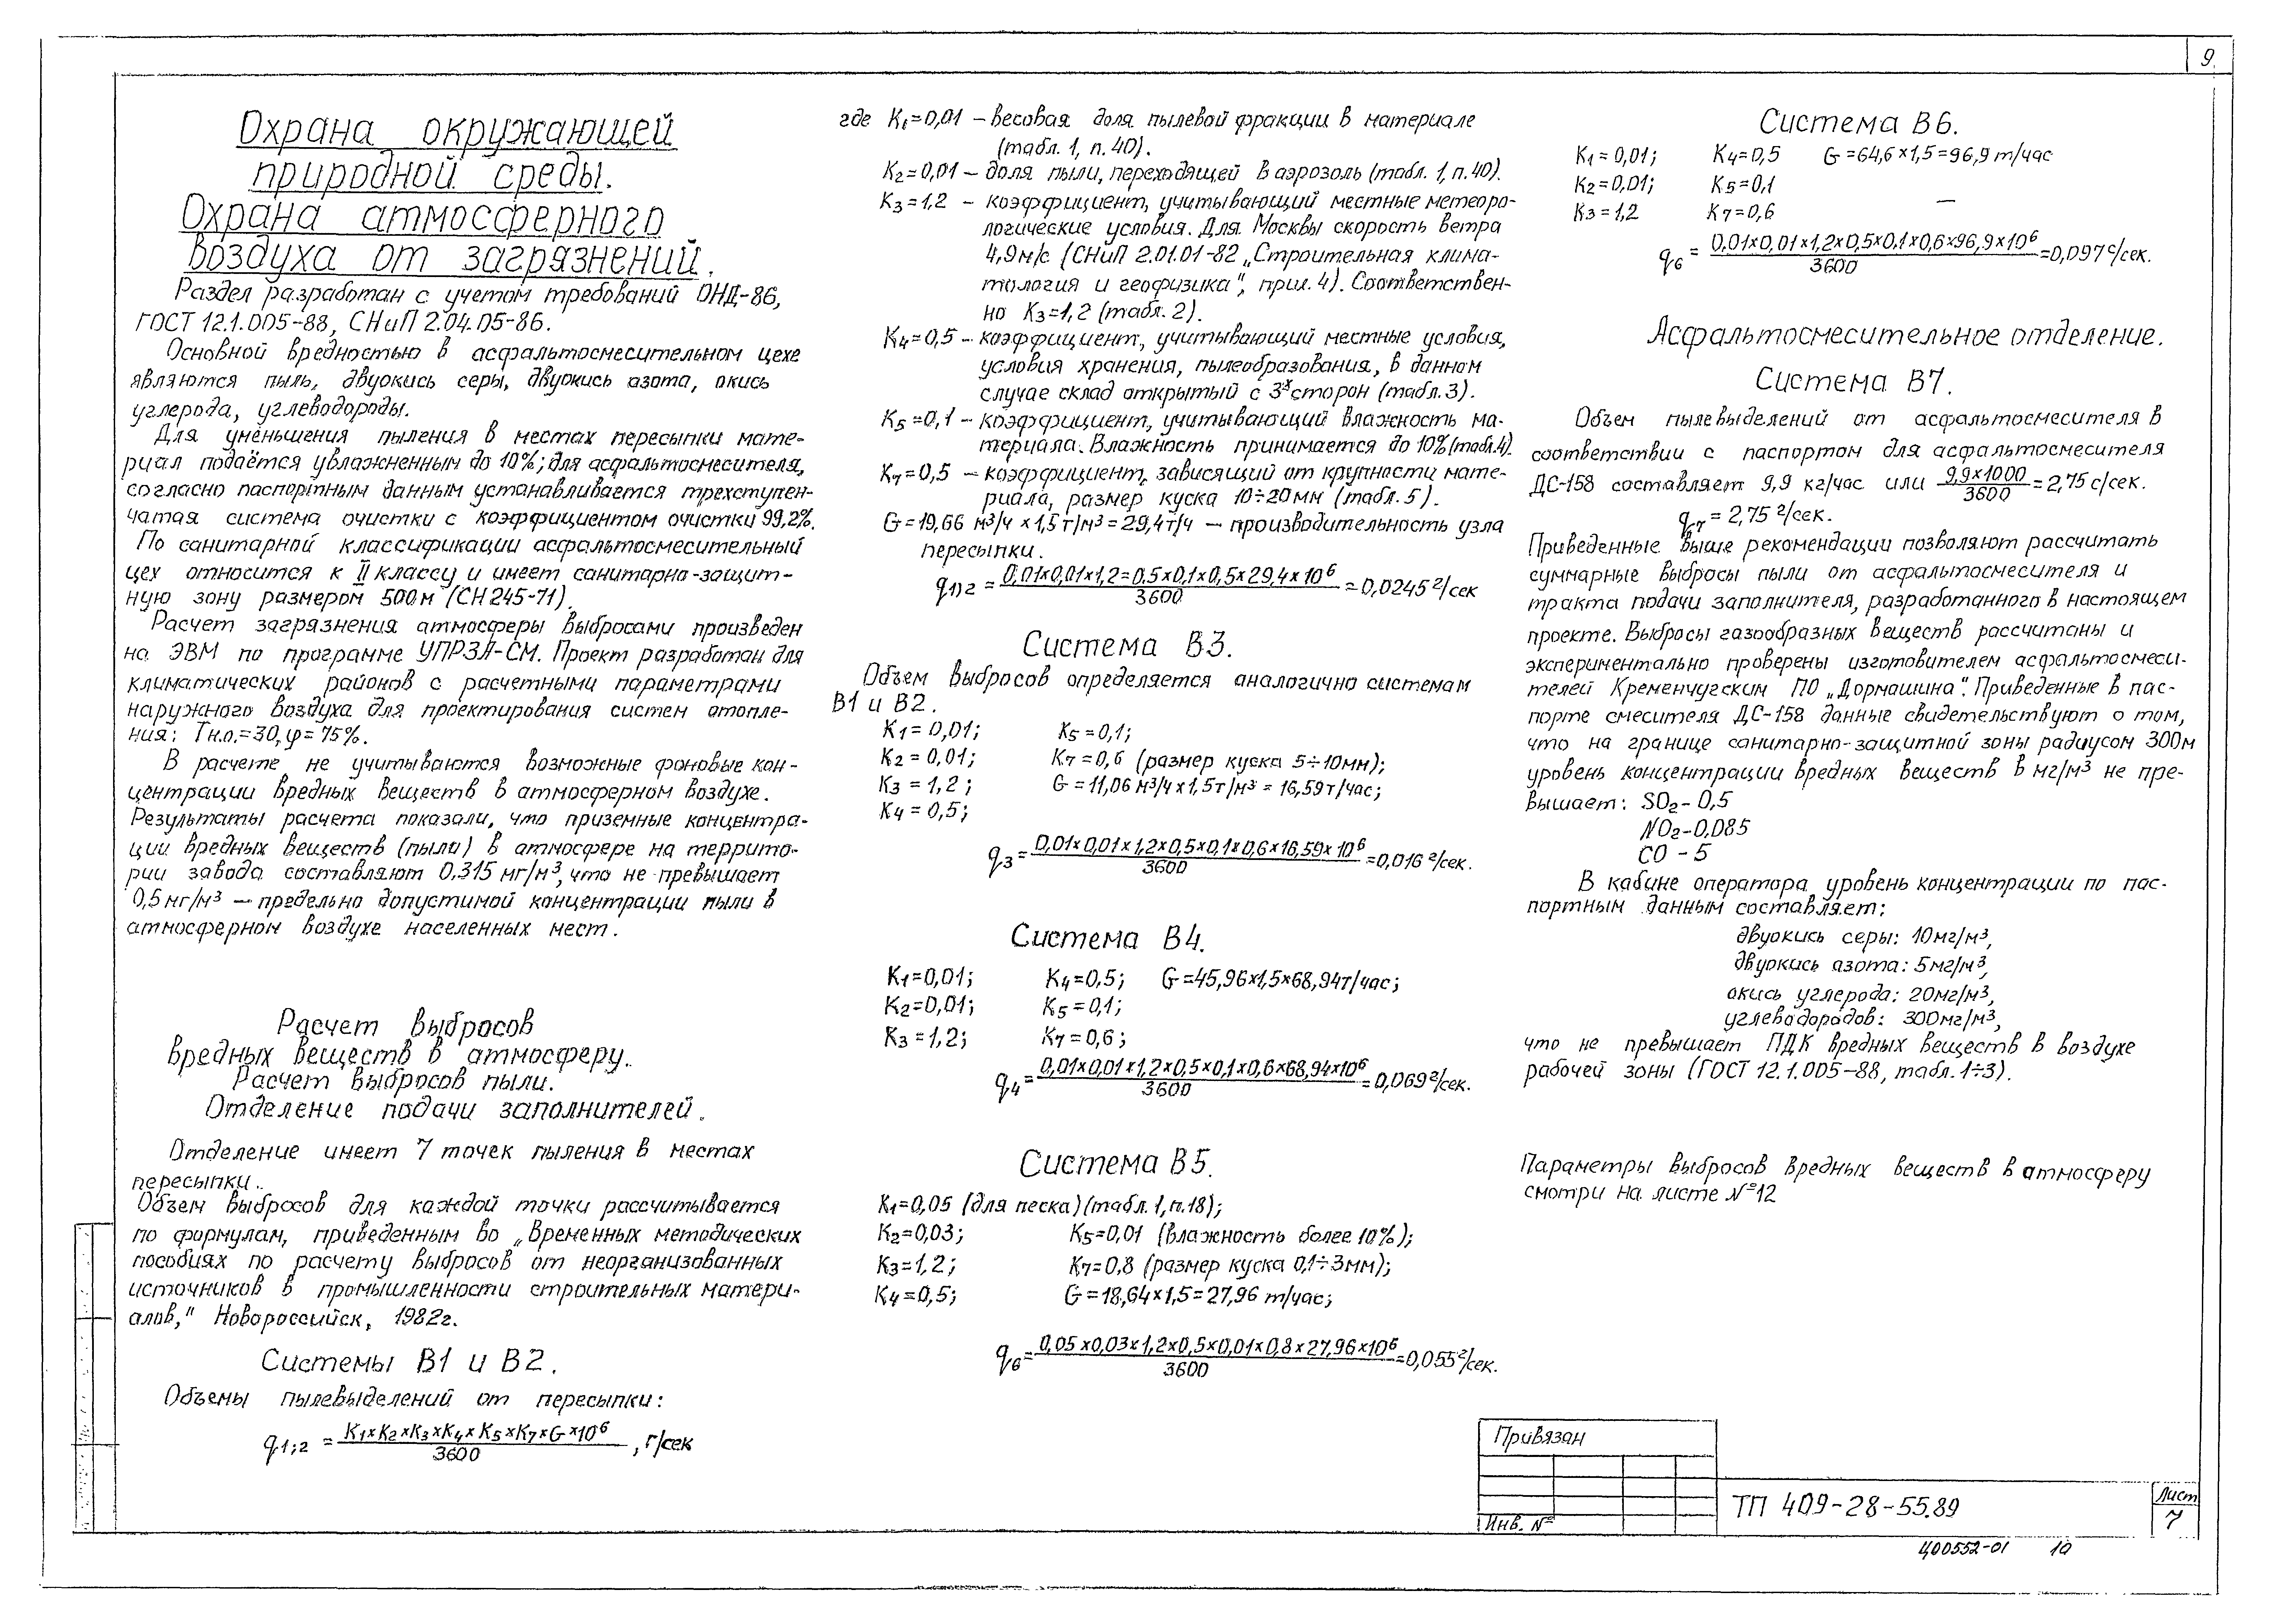 9
Охрана окружающей
природной среды.
Охрана атмосферного
воздуха от загрязнений.
Раздел разработан с учетом требований ОНД-86,
ГОСТ 12.1.005-88, СНиП 2.04.05-86.
Основной вредностью в асфальтосмесительном цехе
являются пыль, двуокись серы, двуокись азота, окись
углерода, углеводороды.
Для уменьшения пыления в местах пересыпки мате-
риал подаётся увлажненным до 10%; для асфальтосмесителя,
согласно паспортным данным устанавливается трехступен-
чатая система очистки с коэффициентом очистки 99,2%.
По санитарной классификации асфальтосмесительный
цех относится к II классу и имеет санитарно-защит-
ную зону размером 500м (СН 245-71).
Расчет загрязнения атмосферы выбросами произведен
на ЭВМ по программе УПРЗА-СМ. Проект разработан для
климатических районов с расчетными параметрами
наружного воздуха для проектирования систем отопле-
ния: Tн.о.=30, φ=75%.
В расчете не учитываются возможные фоновые кон-
центрации вредных веществ в атмосферном воздухе.
Результаты расчета показали, что приземные концентра-
ции вредных веществ (пыли) в атмосфере на террито-
рии завода составляют 0,315 мг/м³, что не превышает
0,5 мг/м³ — предельно допустимой концентрации пыли в
атмосферном воздухе населенных мест.
Расчет выбросов
вредных веществ в атмосферу.
Расчет выбросов пыли.
Отделение подачи заполнителей.
Отделение имеет 7 точек пыления в местах
пересыпки.
Объем выбросов для каждой точки рассчитывается
по формулам, приведенным во „Временных методических
пособиях по расчету выбросов от неорганизованных
источников в промышленности строительных матери-
алов," Новороссийск, 1982г.
Системы В1 и В2.
Объемы пылевыделений от пересыпки:
q1;2 = K1×K2×K3×K4×K5×K7×G×10⁶ / 3600, г/сек
где K1=0,01 – весовая доля пылевой фракции в материале
(табл. 1, п. 40).
K2=0,01 – доля пыли, переходящей в аэрозоль (табл. 1, п. 40).
K3=1,2 – коэффициент, учитывающий местные метеоро-
логические условия. Для Москвы скорость ветра
4,9м/с (СНиП 2.01.01-82 „Строительная клима-
тология и геофизика", прил. 4). Соответствен-
но K3=1,2 (табл. 2).
K4=0,5 – коэффициент, учитывающий местные условия,
условия хранения, пылеобразования, в данном
случае склад открытый с 3х сторон (табл.3).
K5=0,1 – коэффициент, учитывающий влажность ма-
териала. Влажность принимается до 10% (табл.4).
K7=0,5 – коэффициент, зависящий от крупности мате-
риала, размер куска 10÷20мм (табл. 5).
G=19,66 м³/ч × 1,5т/м³ = 29,4т/ч – производительность узла
пересыпки.
q1)2 = 0,01×0,01×1,2=0,5×0,1×0,5×29,4×10⁶ / 3600 = 0,0245 г/сек
Система В3.
Объем выбросов определяется аналогично системам
В1 и В2.
K1=0,01; K5=0,1;
K2=0,01; K7=0,6 (размер куска 5÷10мм);
K3=1,2; G=11,06 м³/ч × 1,5т/м³ = 16,59т/час;
K4=0,5;
q3= 0,01×0,01×1,2×0,5×0,1×0,6×16,59×10⁶ / 3600 =0,016 г/сек.
Система В4.
K1=0,01; K4=0,5; G=45,96×1,5×68,94т/час;
K2=0,01; K5=0,1;
K3=1,2; K7=0,6;
q4= 0,01×0,01×1,2×0,5×0,1×0,6×68,94×10⁶ / 3600 =0,069 г/сек.
Система В5.
K1=0,05 (для песка) (табл. 1, п.18);
K2=0,03; K5=0,01 (влажность более 10%);
K3=1,2; K7=0,8 (размер куска 0,1÷3мм);
K4=0,5; G=18,64×1,5=27,96 т/час;
q6= 0,05×0,03×1,2×0,5×0,01×0,8×27,96×10⁶ / 3600 =0,055 г/сек.
Система В6.
K1=0,01; K4=0,5 G=64,6×1,5=96,9 т/час
K2=0,01; K5=0,1
K3=1,2 K7=0,6 —
q6 = 0,01×0,01×1,2×0,5×0,1×0,6×96,9×10⁶ / 3600 =0,097 г/сек.
Асфальтосмесительное отделение.
Система В7.
Объем пылевыделений от асфальтосмесителя в
соответствии с паспортом для асфальтосмесителя
ДС-158 составляет 9,9 кг/час или 9,9×1000 / 3600 =2,75 с/сек.
q7 = 2,75 г/сек.
Приведенные выше рекомендации позволяют рассчитать
суммарные выбросы пыли от асфальтосмесителя и
тракта подачи заполнителя, разработанного в настоящем
проекте. Выбросы газообразных веществ рассчитаны и
экспериментально проверены изготовителем асфальтосмеси-
телей Кременчугским ПО „Дормашина". Приведенные в пас-
порте смесителя ДС-158 данные свидетельствуют о том,
что на границе санитарно-защитной зоны радиусом 300м
уровень концентрации вредных веществ в мг/м³ не пре-
вышает: SO2 - 0,5
NO2 - 0,085
CO - 5
В кабине оператора уровень концентрации по пас-
портным данным составляет:
двуокись серы: 10мг/м³,
двуокись азота: 5мг/м³,
окись углерода: 20мг/м³,
углеводородов: 300мг/м³,
что не превышает ПДК вредных веществ в воздухе
рабочей зоны (ГОСТ 12.1.005-88, табл. 1÷3).
Параметры выбросов вредных веществ в атмосферу
смотри на листе №12
Привязан
Инв. №
ТП 409-28-55.89
Лист
7
Ц00552-01 10